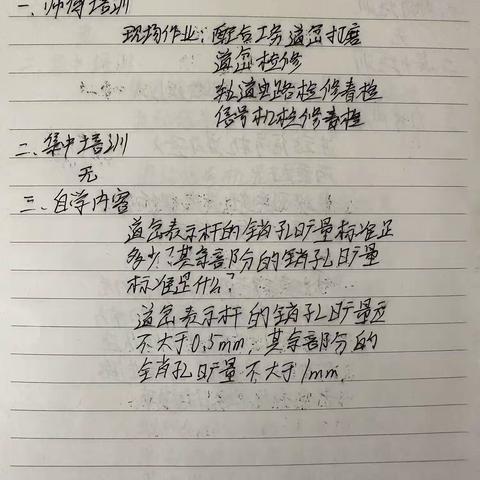 一、师傅培训
现场作业：配合工务道岔打磨
道岔检修
轨道电路检修普检
信号机检修普检
二、集中培训
无
三、自学内容
道岔表示杆的销孔旷量标准是
多少？其余部分的销孔旷量
标准是什么？
道岔表示杆的销孔旷量应
不大于0.5mm，其余部分的
销孔旷量不大于1mm。